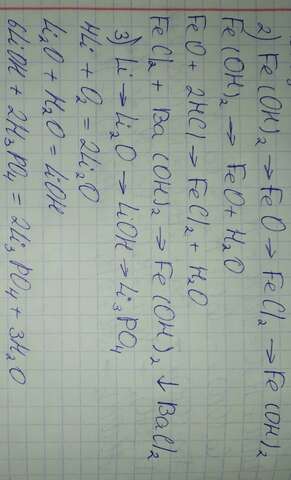 2) Fe(OH)₂ → FeO → FeCl₂ → Fe(OH)₂
Fe(OH)₂ → FeO + H₂O
FeO + 2HCl → FeCl₂ + H₂O
FeCl₂ + Ba(OH)₂ → Fe(OH)₂ ↓ BaCl₂
3) Li → Li₂O → LiOH → Li₃PO₄
4Li + O₂ = 2Li₂O
Li₂O + H₂O = LiOH
6LiOH + 2H₃PO₄ = 2Li₃PO₄ + 3H₂O